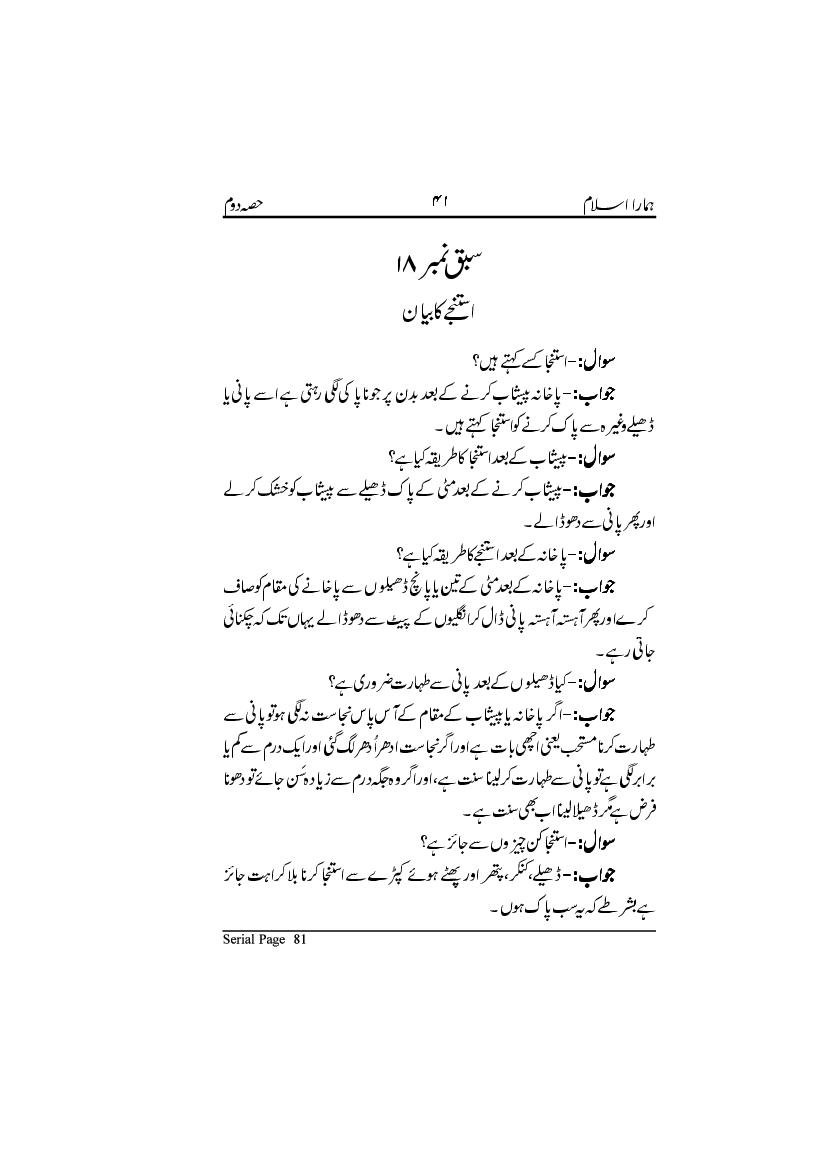 ہمارا اسلام ۴۱ حصہ دوم
سبق نمبر ۱۸
استنجے کا بیان
سوال:- استنجا کسے کہتے ہیں؟
جواب:- پاخانہ پیشاب کرنے کے بعد بدن پر جو ناپاکی لگی رہتی ہے اسے پانی یا
ڈھیلے وغیرہ سے پاک کرنے کو استنجا کہتے ہیں۔
سوال:- پیشاب کے بعد استنجا کا طریقہ کیا ہے؟
جواب:- پیشاب کرنے کے بعد مٹی کے پاک ڈھیلے سے پیشاب کو خشک کر لے
اور پھر پانی سے دھو ڈالے۔
سوال:- پاخانہ کے بعد استنجے کا طریقہ کیا ہے؟
جواب:- پاخانہ کے بعد مٹی کے تین یا پانچ ڈھیلوں سے پاخانے کی مقام کو صاف
کرے اور پھر آہستہ آہستہ پانی ڈال کر انگلیوں کے پیٹ سے دھو ڈالے یہاں تک کہ چکنائی
جاتی رہے۔
سوال:- کیا ڈھیلوں کے بعد پانی سے طہارت ضروری ہے؟
جواب:- اگر پاخانہ یا پیشاب کے مقام کے آس پاس نجاست نہ لگی ہو تو پانی سے
طہارت کرنا مستحب یعنی اچھی بات ہے اور اگر نجاست ادھر اُدھر لگ گئی اور ایک درم سے کم یا
برابر لگی ہے تو پانی سے طہارت کر لینا سنت ہے، اور اگر وہ جگہ درم سے زیادہ سَن جائے تو دھونا
فرض ہے مگر ڈھیلا لینا اب بھی سنت ہے۔
سوال:- استنجا کن چیزوں سے جائز ہے؟
جواب:- ڈھیلے، کنکر، پتھر اور پھٹے ہوئے کپڑے سے استنجا کرنا بلا کراہت جائز
ہے بشرطے کہ یہ سب پاک ہوں۔
Serial Page 81